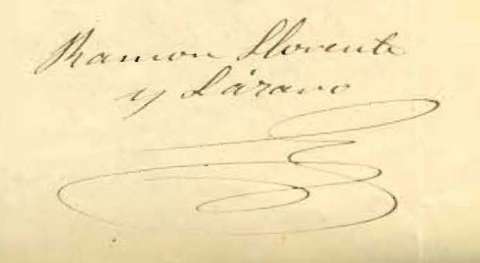 Ramon Llorente
y Lázaro